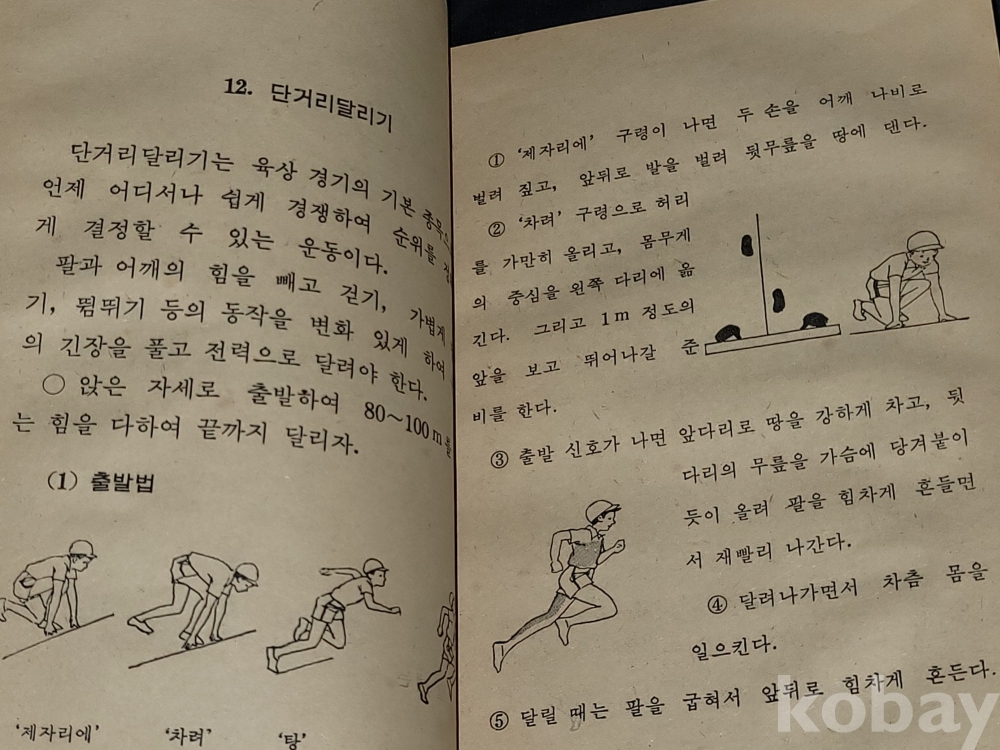 12. 단거리달리기
단거리달리기는 육상 경기의 기본 종목
언제 어디서나 쉽게 경쟁하여 순위를
게 결정할 수 있는 운동이다.
팔과 어깨의 힘을 빼고 걷기, 가볍게
기, 뜀뛰기 등의 동작을 변화 있게 하여
의 긴장을 풀고 전력으로 달려야 한다.
○ 앉은 자세로 출발하여 80~100m를
는 힘을 다하여 끝까지 달리자.
(1) 출발법
'제자리에' '차려' '탕'
① '제자리에' 구령이 나면 두 손을 어깨 나비로
벌려 짚고, 앞뒤로 발을 벌려 뒷무릎을 땅에 댄다.
② '차려' 구령으로 허리
를 가만히 올리고, 몸무게
의 중심을 왼쪽 다리에 옮
긴다. 그리고 1m 정도의
앞을 보고 뛰어나갈 준
비를 한다.
③ 출발 신호가 나면 앞다리로 땅을 강하게 차고, 뒷
다리의 무릎을 가슴에 당겨붙이
듯이 올려 팔을 힘차게 흔들면
서 재빨리 나간다.
④ 달려나가면서 차츰 몸을
일으킨다.
⑤ 달릴 때는 팔을 굽혀서 앞뒤로 힘차게 흔든다.
kobay